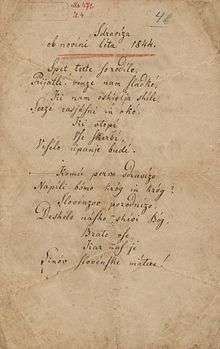 Sdravizа
ob novini leta 1844.
Spet terte so rodile,
Prijatli! vinze nam sladkó,
Ki nam oshivlja shile
Serze rasjasni in oko.
Ki vtopi
Vse skerbi,
upanje budi.
Komú pervo sdravizo
Napili bomo króg in króg?
Slovenzov porodnizo
Deshelo nasho shivi Bóg,
Brate vse
Kar naf je
Sinov slovenshe matere!